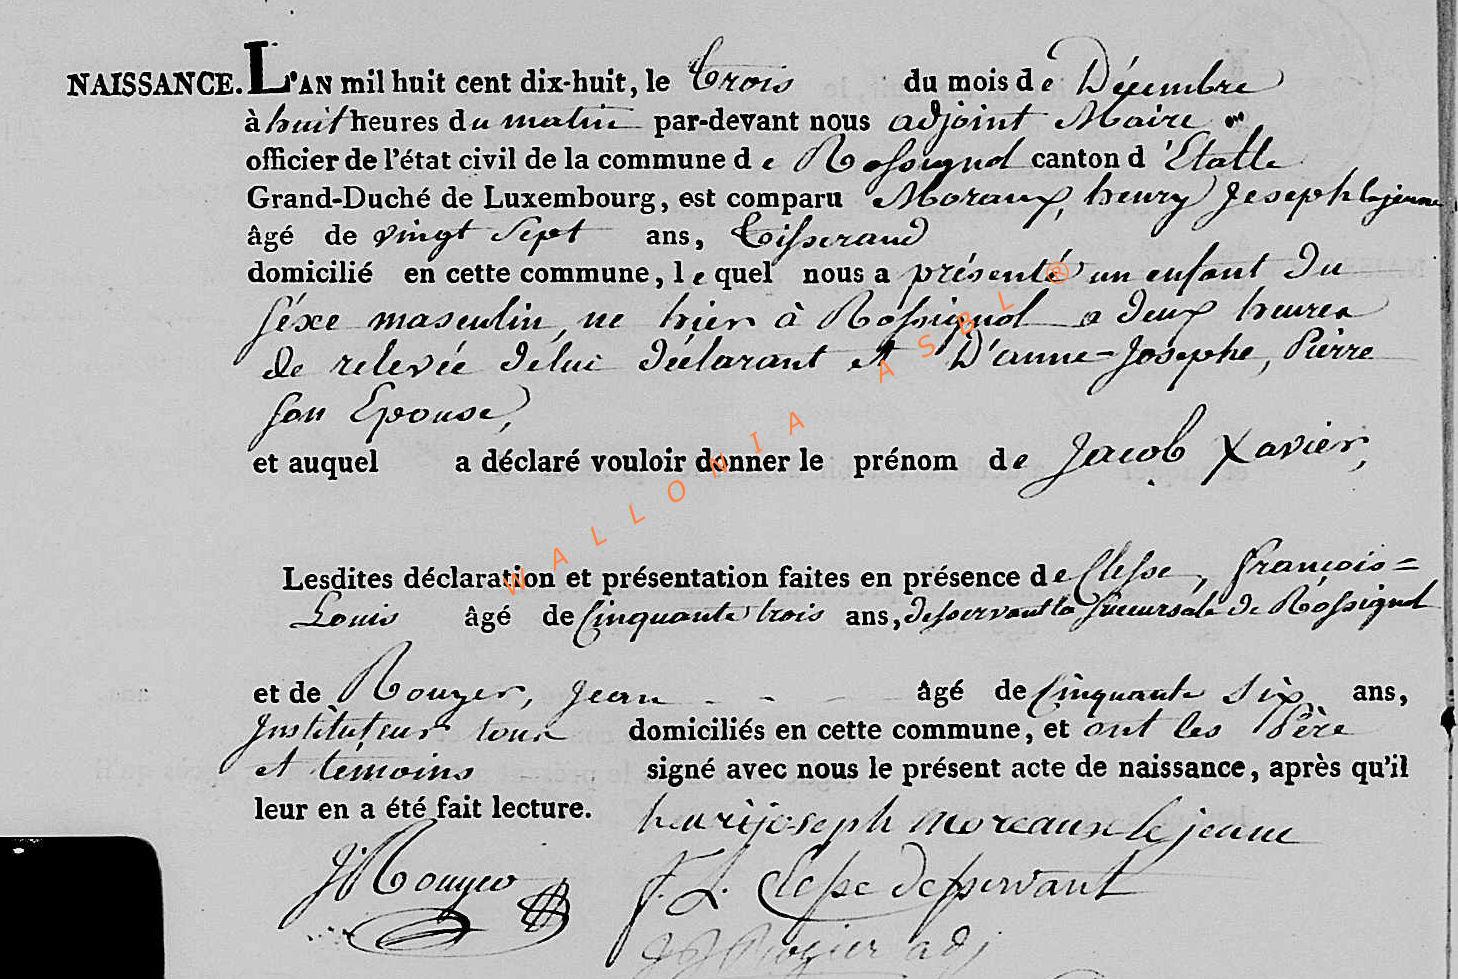 NAISSANCE. L'AN mil huit cent dix-huit, le trois du mois de Décembre
à huit heures du matin par-devant nous adjoint Maire
officier de l'état civil de la commune de Rossignol canton d'Etalle
Grand-Duché de Luxembourg, est comparu Moraux, henry Joseph le jeune
âgé de vingt Sept ans, tisserand
domicilié en cette commune, lequel nous a présenté un enfant du
séxe masculin, ne hier à Rossignol a deux heures
de relevée de lui déclarant et D'anne-Josephe, Pierre
son Epouse,
et auquel a déclaré vouloir donner le prénom de Jacob Xavier,
Lesdites déclaration et présentation faites en présence de Clesse, françois=
Louis âgé de Cinquante trois ans, desservant la Succursale de Rossignol
et de Rouyer, Jean - - âgé de Cinquante Six ans,
Instituteur tous domiciliés en cette commune, et ont les Père
et témoins signé avec nous le présent acte de naissance, après qu'il
leur en a été fait lecture.
henri joseph moreaux le jeune
J Rouyer
f. L. Clesse desservant
Rogier adj
WALLONIA ASBL ®